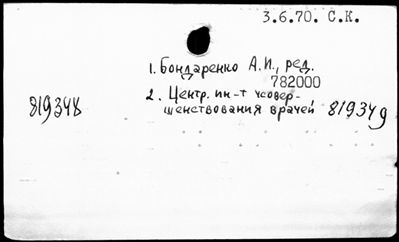 3.6.70. С.К.
1. Бондаренко А.И., ред.
782000
2. Центр. ин-т усовер-
шенствования врачей 819349
819348